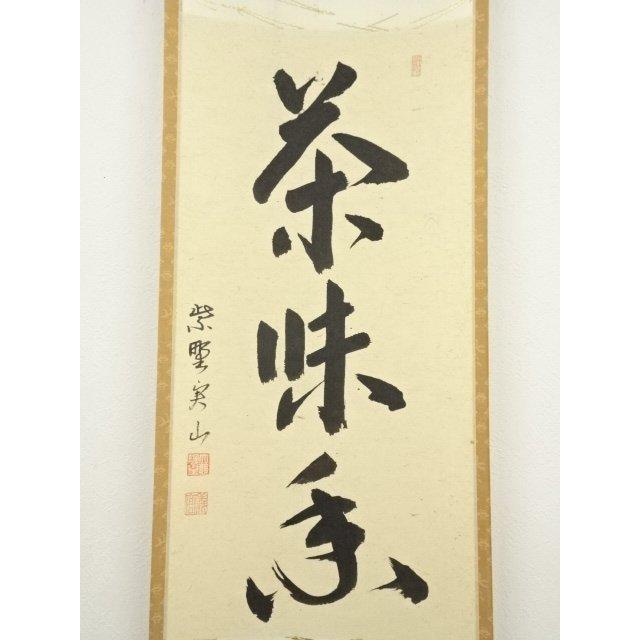 茶味香
紫野実山